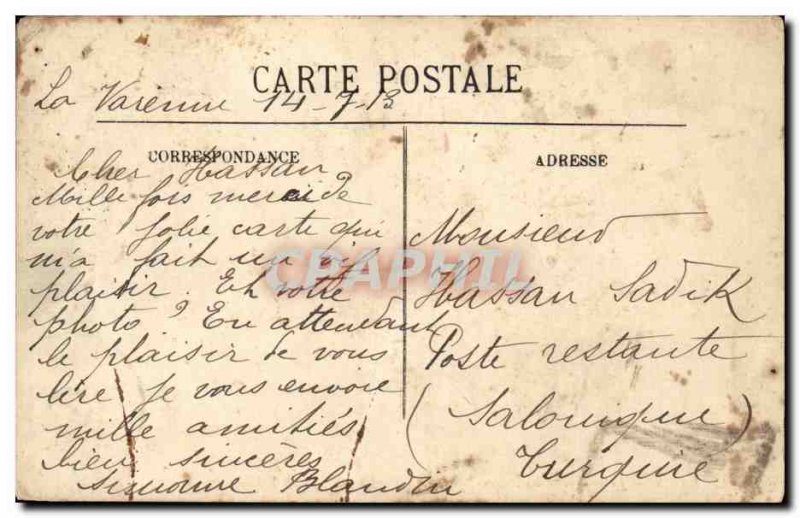 CARTE POSTALE
La Varenne 14-7-13
CORRESPONDANCE
Cher Hassan
Mille fois merci de
votre jolie carte qui
m'a fait un
plaisir. Et votre
photo? En attendant
le plaisir de vous
lire je vous envoie
mille amitiés
bien sincères
Simonne Blandin
ADRESSE
Monsieur
Hassan Sadik
Poste restante
(Salonique)
Turquie
CPAPHIL